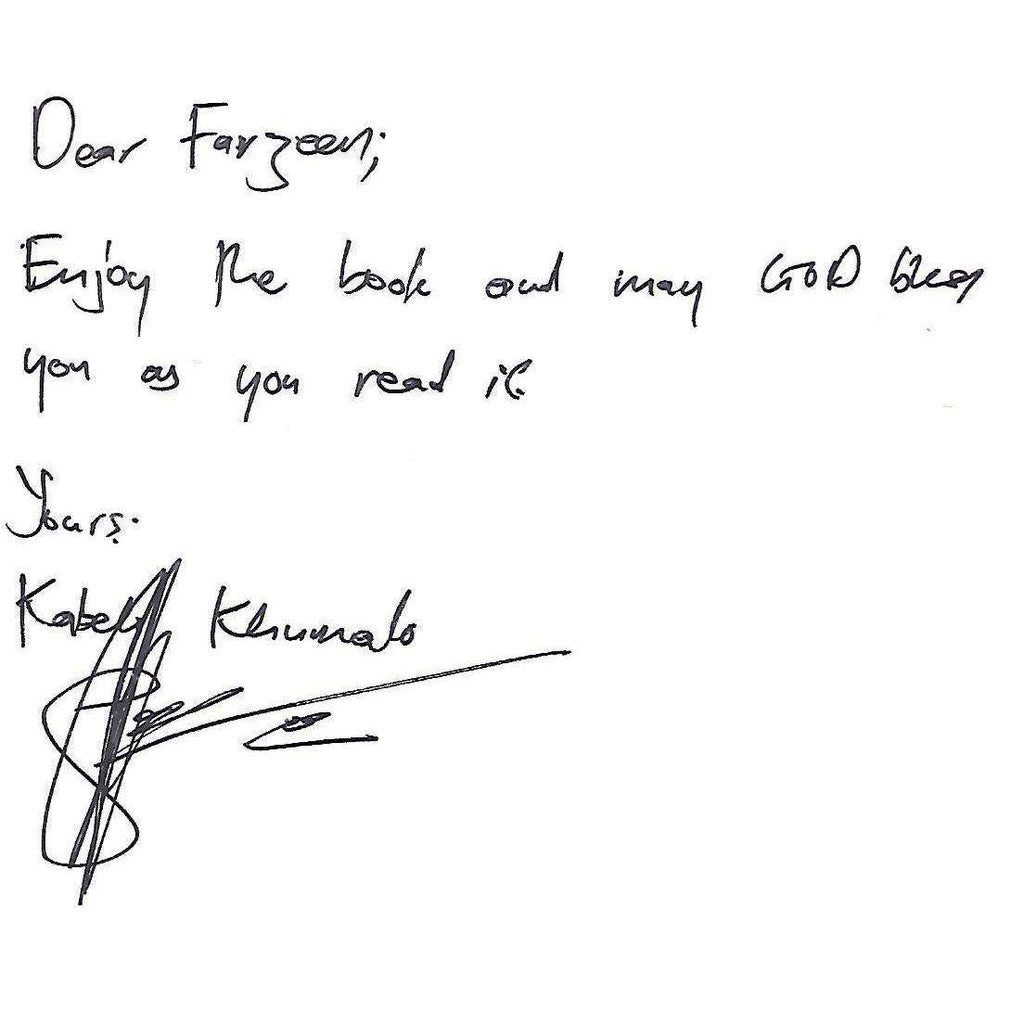 Dear Farzeen;
Enjoy the book and may GOD bless
you as you read it
Yours:
Kabelo Khumalo